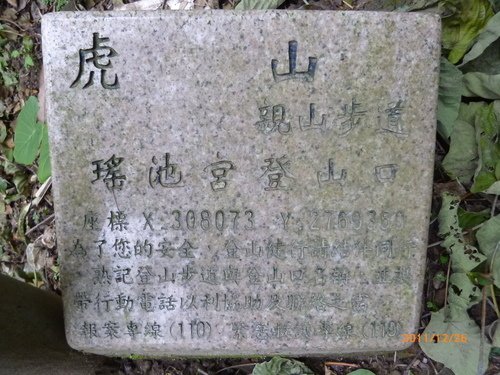 虎山
親山步道
瑤池宮登山口
座標 X:308073 Y:2769360
為了您的安全,登山健行請結伴同行
熟記登山步道與登山口名稱,並攜
帶行動電話以利協助及聯絡定位
報案專線(110) 緊急救援專線(119)
2011/12/26